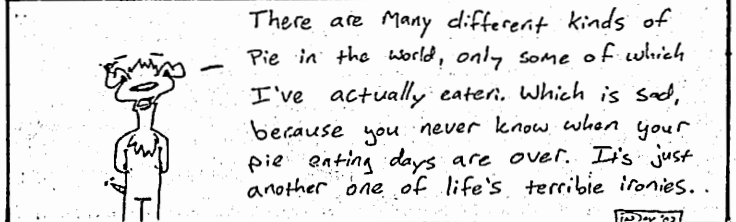 There are Many different kinds of
Pie in the world, only some of which
I've actually eaten. Which is sad,
because you never know when your
pie eating days are over. It's just
another one of life's terrible ironies..